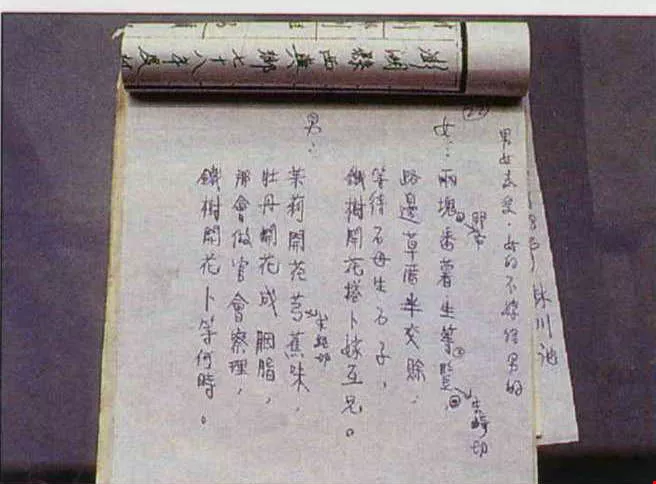 澎湖縣西嶼鄉七十八年度
林川池
男女恋愛,女的不嫁給男的
女:兩塊番薯生等
路邊草厝半交賒,
等待石母生石子,
鐵樹開花搭卜嫁互兄。
男:
茉莉開花芎蕉味,
牡丹開花成胭脂,
那會做官會察理,
鐵樹開花卜等何時。